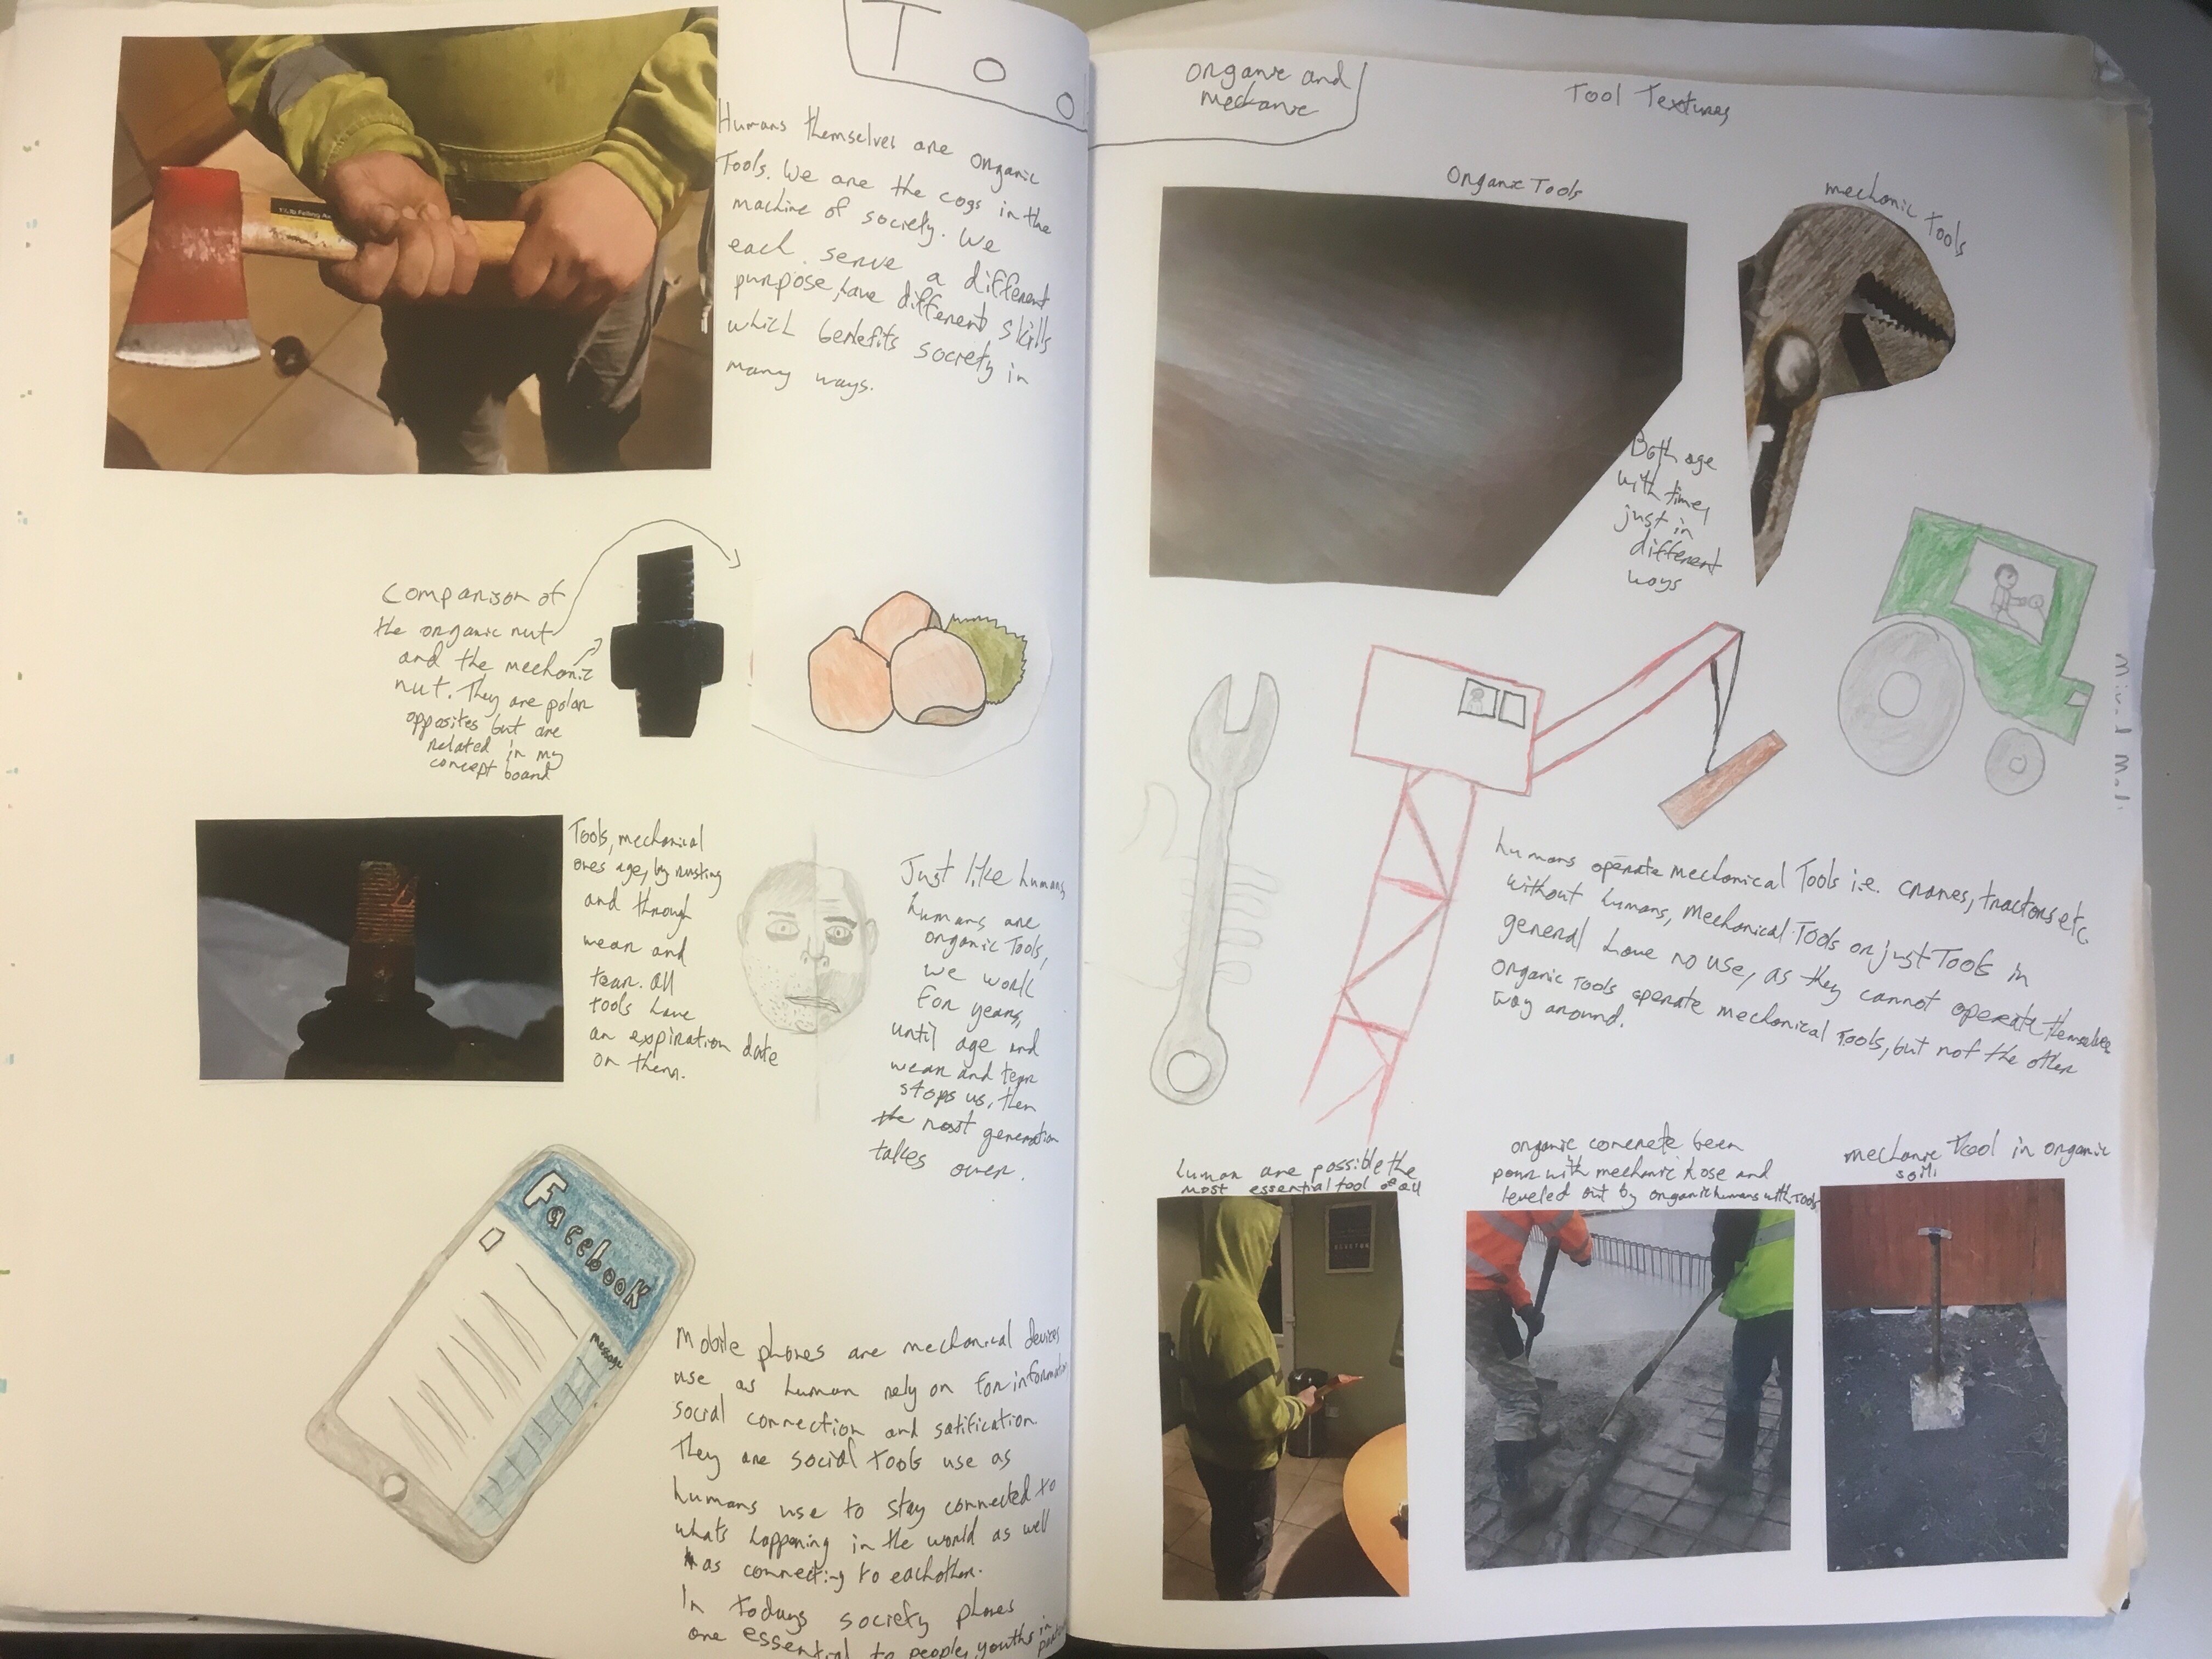 T
o
o
Humans themselves are organic
Tools. We are the cogs in the
machine of society. We
each serve a different
purpose, have different skills
which benefits society in
many ways.
Comparison of
the organic nut
and the mechanic
nut. They are polar
opposites but are
related in my
concept board
Tools, mechanical
ones age, by rusting
and through
wear and
tear. All
tools have
an expiration date
on them.
Just like humans,
humans are
organic Tools,
we work
for years,
until age and
wear and tear
stops us, then
the next generation
takes over.
Facebook
message
Mobile phones are mechanical devices
use as human rely on for information
social connection and satification.
They are social tools use as
humans use to stay connected to
whats happening in the world as well
as connecting to eachother.
In todays society phones
are essential to people, youths in
organic and
mechanic
Tool Textures
Organic Tools
mechanic Tools
Both age
with time,
just in
different
ways
humans operate mechanical Tools i.e. cranes, tractors etc.
without humans, mechanical Tools or just Tools in
general have no use, as they cannot operate themselves
organic Tools operate mechanical Tools, but not the other
way around.
human are possible the
most essential tool of all
organic concrete been
pour with mechanic hose and
leveled out by organic humans with Tools
mechanic tool in organic
soil